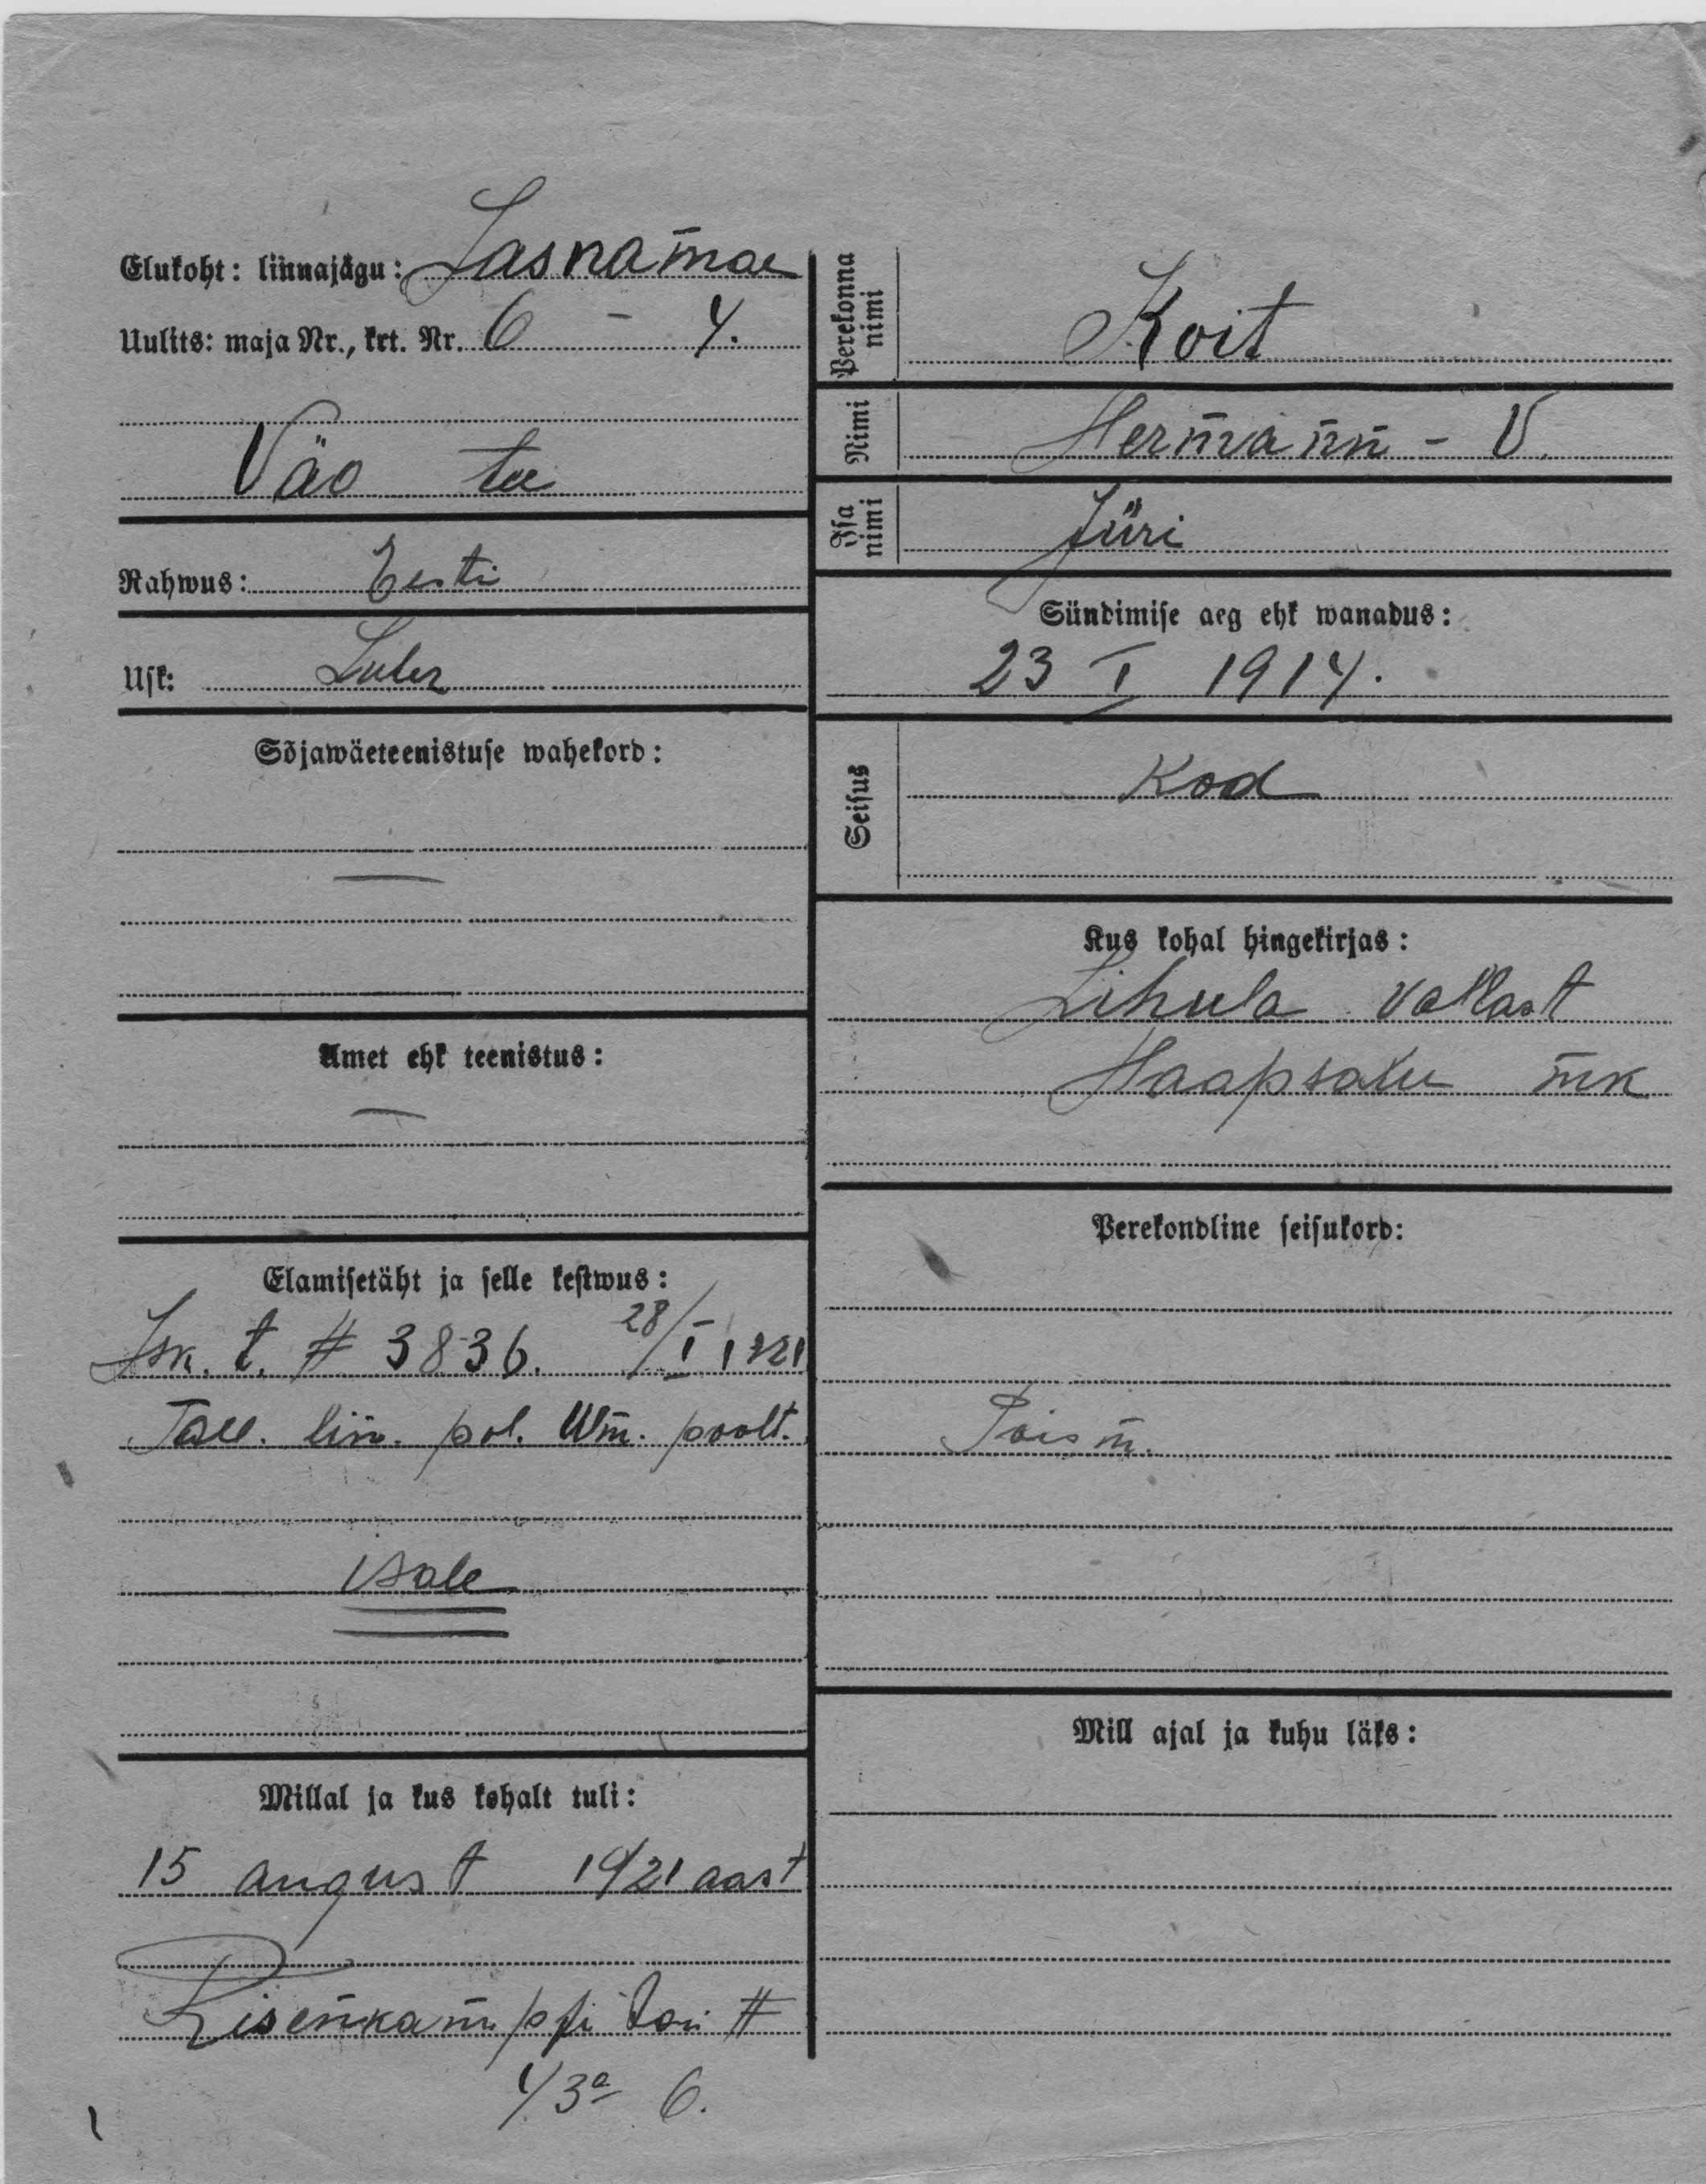 Elukoht: linnajagu: Lasnamäe
Uulits: maja Nr., krt. Nr. 6 – 4.
Väo tee
Rahwus: Eesti
Usk: Luter
Sõjawäeteenistuse wahekord:
—
Amet ehk teenistus:
—
Elamisetäht ja selle kestwus:
Isk. t. # 3836. 28/I 1921
Tall. lin. pol. Ülm. poolt.
isale
Millal ja kus kohalt tuli:
15 august 1921 aast
Risenkampfi tän #
1/3a 6.
Perekonna nimi
Koit
Nimi
Hermann - V.
Isa nimi
Jüri
Sündimise aeg ehk wanadus:
23 I 1914.
Seisus
Kod
Kus kohal hingekirjas:
Lihula vallast
Haapsalu mk
Perekondline seisukord:
Poism.
Mill ajal ja kuhu läks: